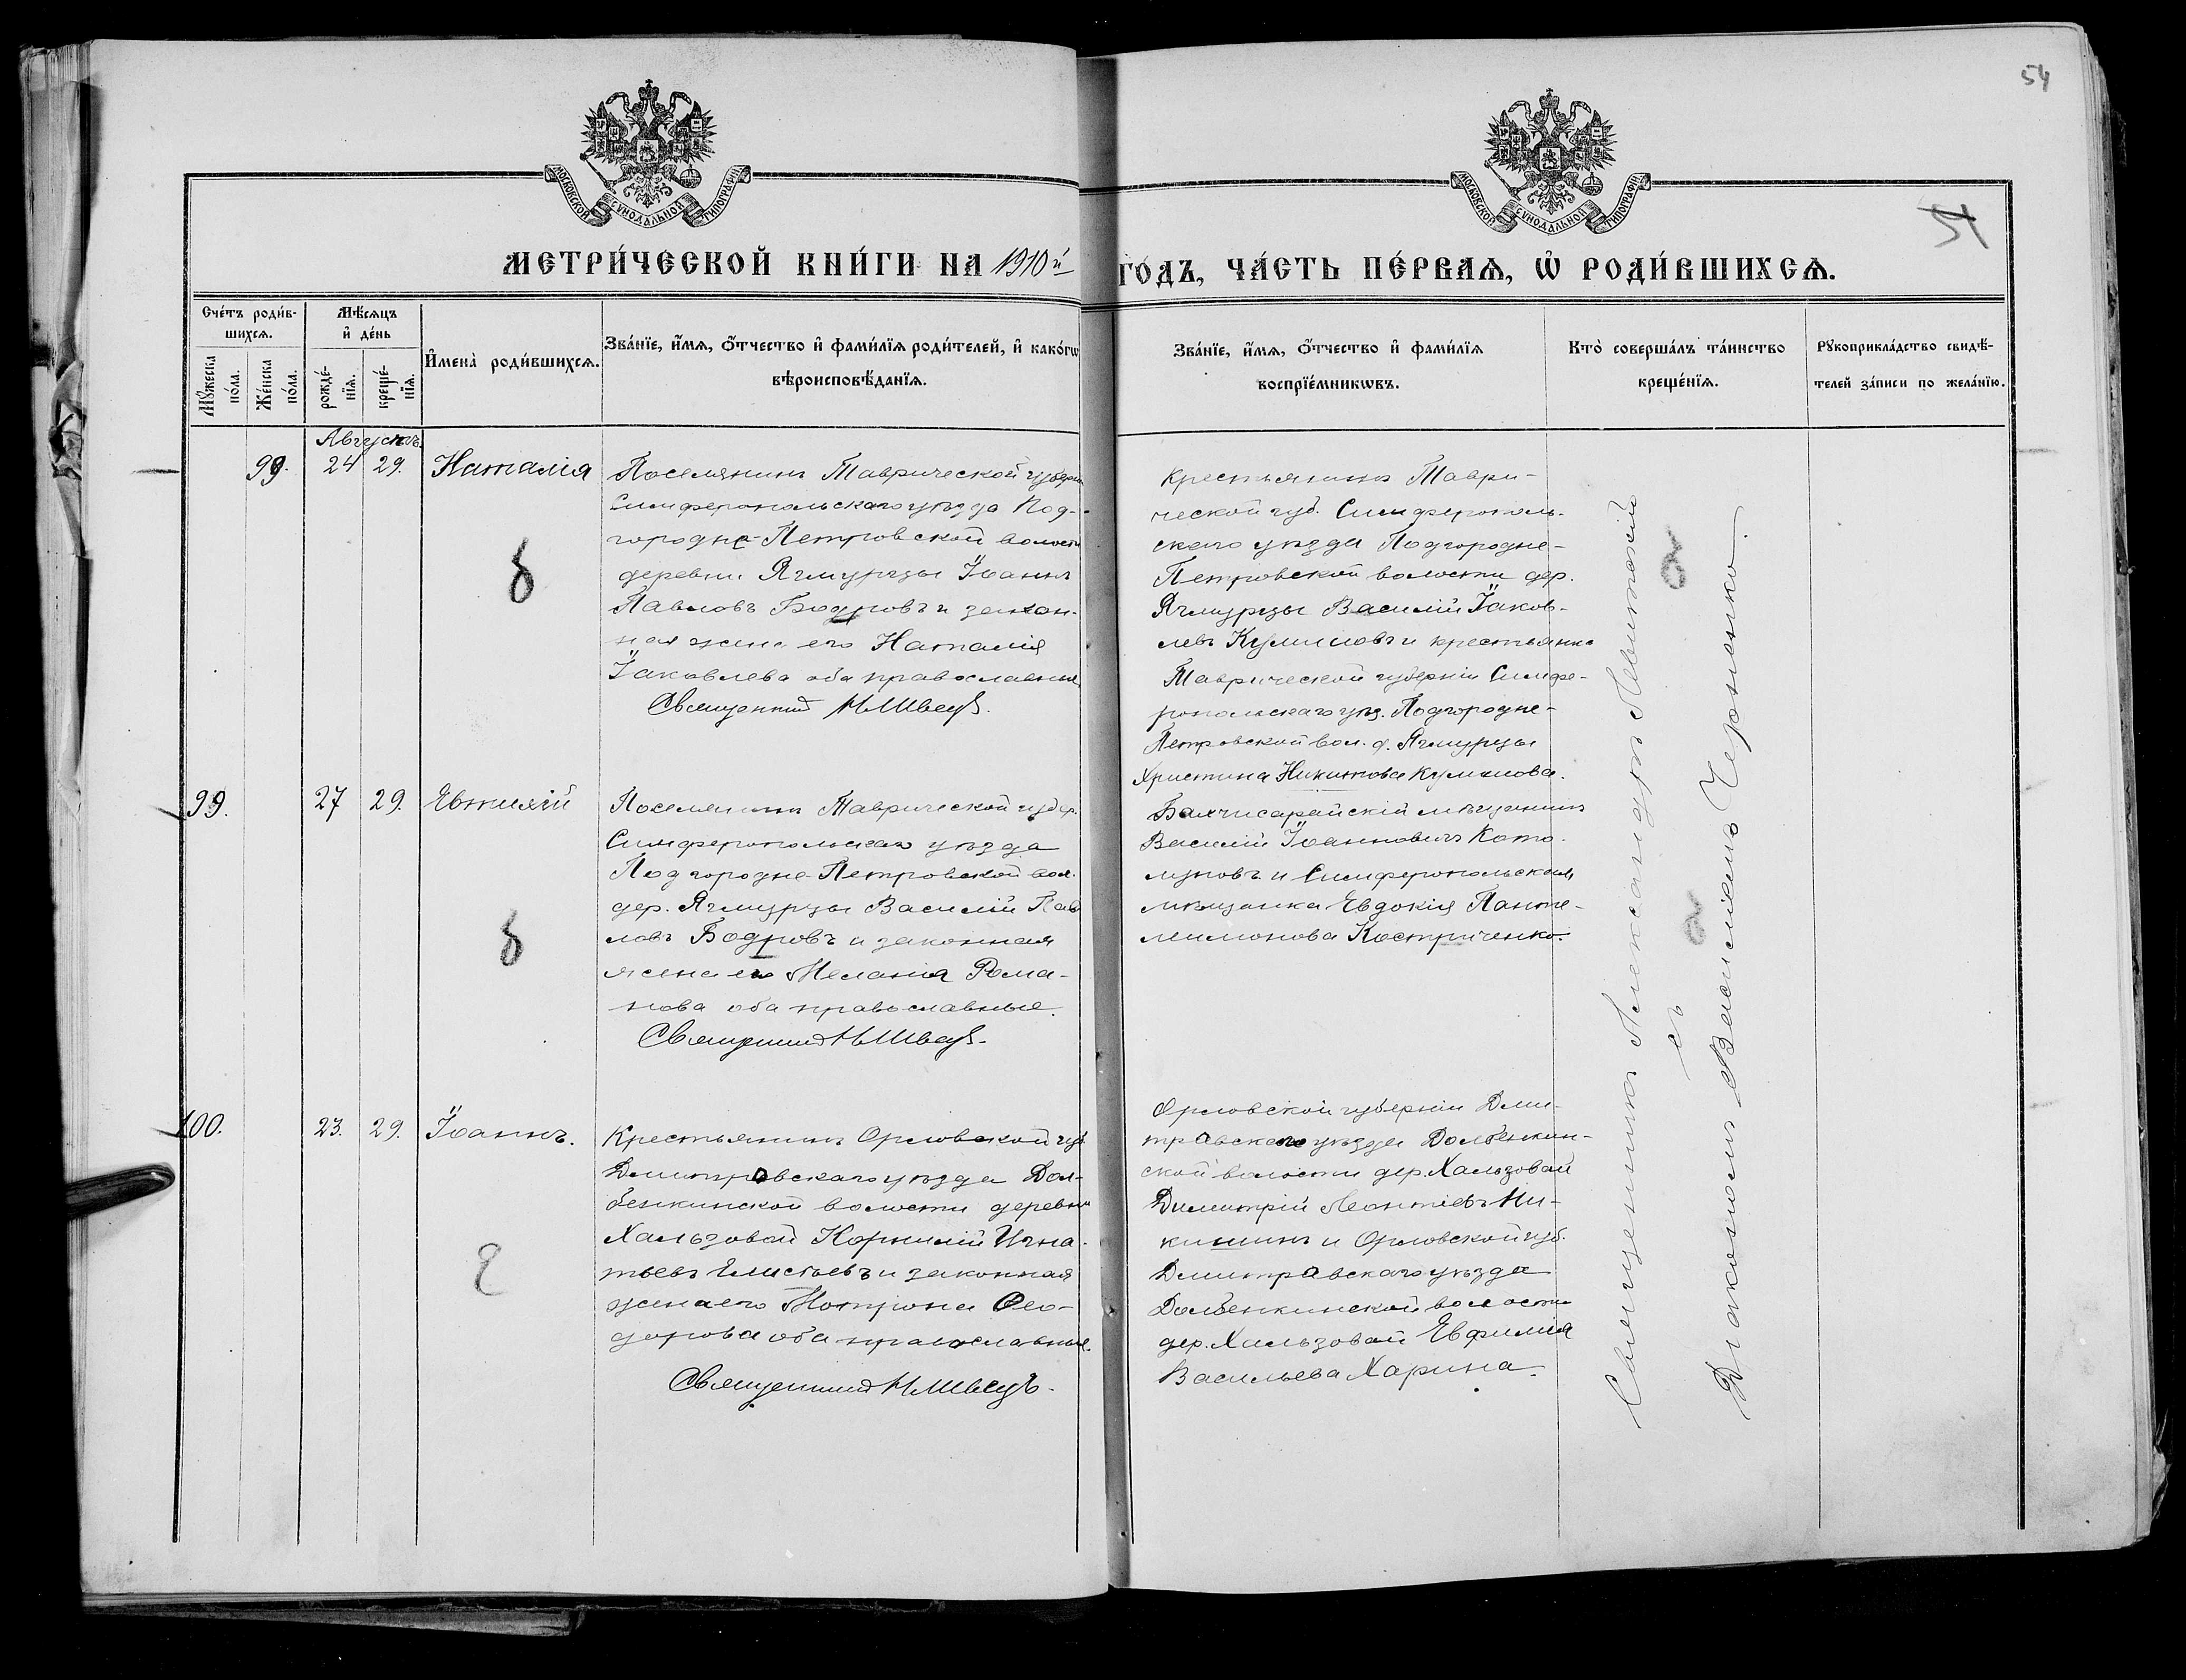 54
51
МОСКОВСКОЙ СѴНОДАЛЬНОЙ ТИПОГРАФІИ
МОСКОВСКОЙ СѴНОДАЛЬНОЙ ТИПОГРАФІИ
МЕТРИ́ЧЕСКОЙ КНИ́ГИ НА 1910й ГО́ДЪ, ЧА́СТЬ ПЕ́РВАЯ, Ѡ РОДИ́ВШИХСЯ.
Сче́тъ роди́в-
шихся.
Мꙋ́жеска по́ла.
Же́нска по́ла.
Мѣ́сяцъ
и де́нь
рожде́-
нїя.
креще́-
нїя.
Имена̀ роди́вшихся.
Зва́нїе, и́мя, о́тчество и фами́лїя роди́телей, и како́гѡ
вѣроисповѣ́данїя.
Зва́нїе, и́мя, о́тчество и фами́лїя
воспрїе́мникѡвъ.
Кто̀ соверша́лъ та́инство
креще́нїя.
Рꙋкоприкла́дство свидѣ́-
телей за́писи по жела́нїю.
Августъ.
99. 24 29. Наталія
Поселянинъ Таврической губерн.
Симферопольскаго уѣзда Под-
городне-Петровской волости
деревни Ягмурцы Іоаннъ
Павловъ Бодровъ и закон-
ная жена его Наталія
Іаковлева оба православные
Священникъ Н. Швецъ.
Крестьянинъ Таври-
ческой губ. Симферополь-
скаго уѣзда Подгородне-
Петровской волости дер.
Ягмурцы Василій Іаков-
левъ и крестьянка
Таврической губерніи Симфе-
ропольскаго уѣз. Подгородне-
Петровской вол. д. Ягмурцы
Христина Никитова
99. 27 29. Евтихій
Поселянинъ Таврической губер.
Симферопольскаго уѣзда
Подгородне-Петровской вол.
дер. Ягмурцы Василій Пав
ловъ Бодровъ и законная
жена его Меланія Рома-
нова оба православные.
Священникъ Н. Швецъ.
Бахчисарайскій мѣщанинъ
Василій Іоанновичъ Кото-
луповъ и Симферопольская
мѣщанка Евдокія Панте-
леимонова Костриченко.
100. 23. 29. Іоаннъ.
Крестьянинъ Орловской губ
Дмитровскаго уѣзда Дол-
бенкинской волости деревни
Хальзовой Корнилій Игна-
тьевъ Елисеевъ и законная
жена его Матрона Ѳео-
дорова оба православные.
Священникъ Н. Швецъ.
Орловской губерніи Дми-
тровскаго уѣзда Долбенкин-
ской волости дер. Хальзовой
Димитрій Леонтіевъ Ни-
кишинъ и Орловской губ.
Дмитровскаго уѣзда
Долбенкинской волости
дер. Хальзовой Евфимія
Васильева Харина.
Священникъ Александръ Левитскій
съ
Діакономъ Василіемъ Черненко.